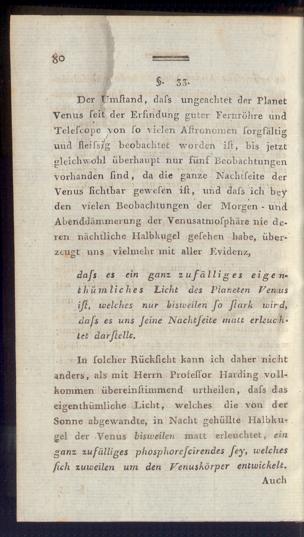 80
§. 33.
Der Umſtand, daſs ungeachtet der Planet
Venus ſeit der Erfindung guter Fernröhre und
Teleſcope von ſo vielen Aſtronomen ſorgfältig
und fleiſsig beobachtet worden iſt, bis jetzt
gleichwohl überhaupt nur fünf Beobachtungen
vorhanden ſind, da die ganze Nachtſeite der
Venus ſichtbar geweſen iſt, und daſs ich bey
den vielen Beobachtungen der Morgen- und
Abenddämmerung der Venusatmoſphäre nie de-
ren nächtliche Halbkugel geſehen habe, über-
zeugt uns vielmehr mit aller Evidenz,
daſs es ein ganz zufälliges eigen-
thümliches Licht des Planeten Venus
iſt, welches nur bisweilen ſo ſtark wird,
daſs es uns ſeine Nachtſeite matt erleuch-
tet darſtellt.
In ſolcher Rückſicht kann ich daher nicht
anders, als mit Herrn Profeſſor Harding voll-
kommen übereinſtimmend urtheilen, daſs das
eigenthümliche Licht, welches die von der
Sonne abgewandte, in Nacht gehüllte Halbku-
gel der Venus bisweilen matt erleuchtet, ein
ganz zufälliges phosphoreſcirendes ſey, welches
ſich zuweilen um den Venuskörper entwickelt.
Auch